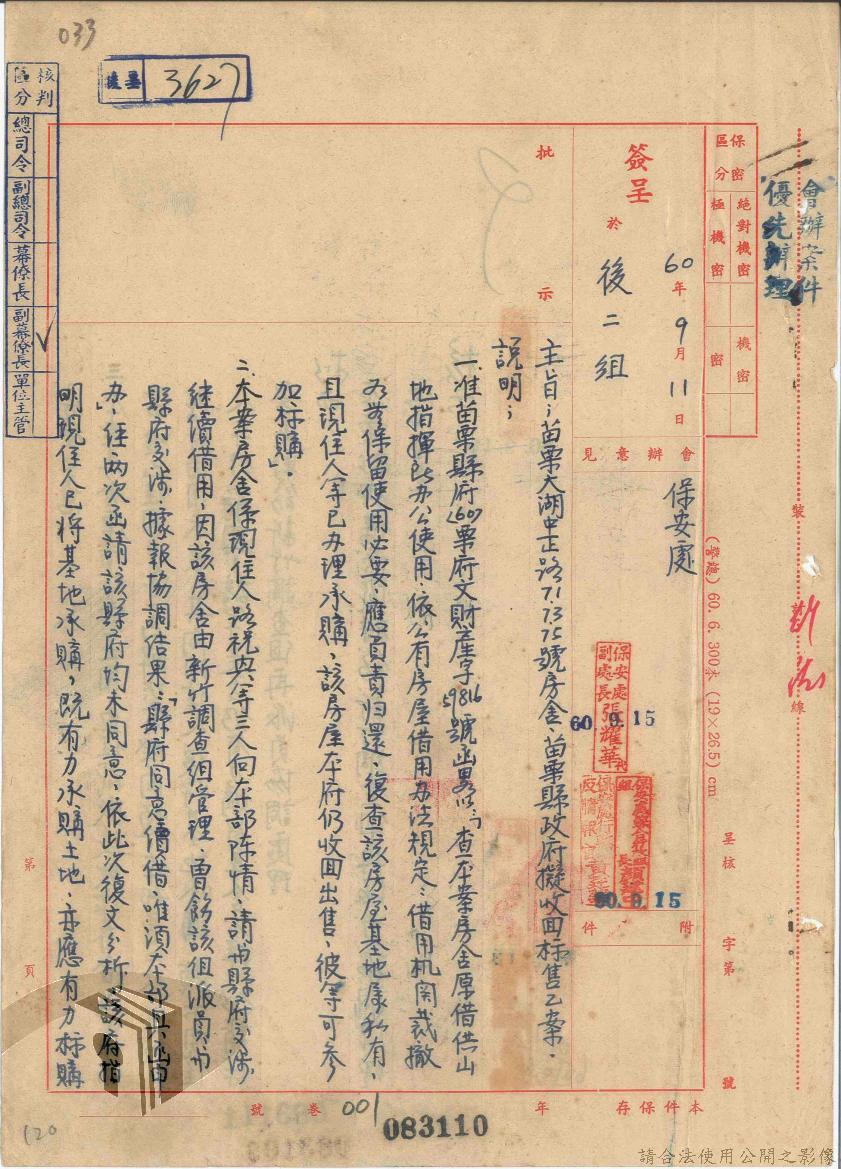 033
後墨 3627
核判區分
總司令
副總司令
幕僚長
副幕僚長
單位主管
會辦案件
優先辦理
保密區分
絕對機密
極機密
機密
密
簽呈
60年9月11日
於 後二組
批示
會辦意見
保安處
保安處副處長張耀華
60.9.15
60.9.15
附件
主旨：苗栗大湖中正路71.73.75號房舍、苗栗縣政府擬收回标售乙案．
說明；
一、准苗栗縣府(60)栗府文財產字59816號函畧以：「查本案房舍原借供山
地指揮所办公使用、依公有房屋借用办法規定：借用机関裁撤
為無保留使用必要、應負責归還、復查該房屋基地属私有、
且現住人等已办理承購、該房屋本府仍收回出售、彼等可参
加标購」．
二、本案房舍係現住人路祝典等三人向本部陈情、請与縣府交涉
継續借用、因該房舍由新竹調查組管理、曾飭該组派員与
縣府交涉．據報協調結果：「縣府同意續借、唯須本部具函申
办」、但兩次函請該縣府均未同意、依此次復文分析、該府指
明現住人已將基地承購、既有力承購土地、亦應有力标購
裝
線
(榮濰) 60. 6. 300本 (19×26.5) cm
呈核 字第 號
第 頁
本件保存 年
001 卷 號
083110
120
請合法使用公開之影像